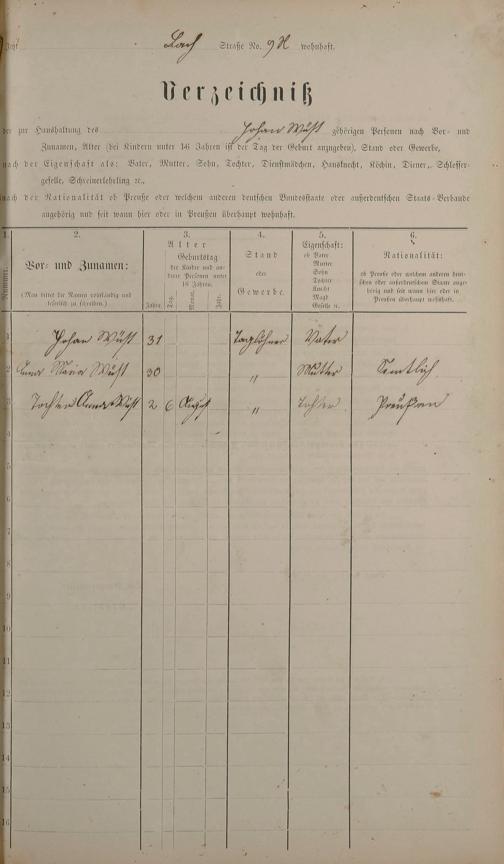 Bach Straße No. 9 wohnhaft.
Verzeichniß
der zur Haushaltung des Johan Wüst gehörigen Personen nach Vor- und
Zunamen, Alter (bei Kindern unter 16 Jahren ist der Tag der Geburt anzugeben), Stand oder Gewerbe,
nach der Eigenschaft als: Vater, Mutter, Sohn, Tochter, Dienstmädchen, Hausknecht, Köchin, Diener, Schlosser-
geselle, Schreinerlehrling ec.,
nach der Nationalität ob Preuße oder welchem anderen deutschen Bundesstaate oder außerdeutschen Staats-Verbande
angehörig und seit wann hier oder in Preußen überhaupt wohnhaft.
1.
Nummer.
2.
Vor- und Zunamen:
(Man bittet die Namen vollständig und
leserlich zu schreiben.)
3.
Alter
Geburtstag
der Kinder und an-
deren Personen unter
16 Jahren.
Jahre. Tag. Monat. Jahr.
4.
Stand
oder
Gewerbe.
5.
Eigenschaft:
ob Vater
Mutter
Sohn
Tochter
Knecht
Magd
Geselle ec.
6.
Nationalität:
ob Preuße oder welchem anderen deut-
schen oder außerdeutschen Staate ange-
hörig und seit wann hier oder in
Preußen überhaupt wohnhaft.
1 Johan Wüst 31 Taglöhner Vater
2 Maria Wüst 30 " Mutter Semtlich
3 Tochter Anna Wüst 2 6 August " Tochter Preußen
4
5
6
7
8
9
10
11
12
13
14
15
16